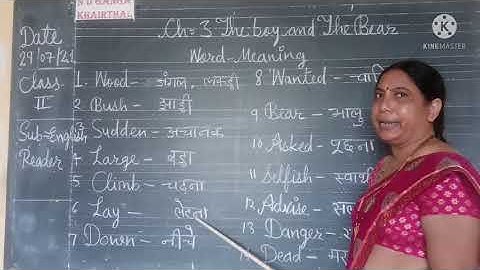 KHAIRTHAL
Ch= 3 The boy and The Bear
Word Meaning
Date
29/07/21
Class-
II
Sub-English
Reader
1. Wood - जंगल, लकड़ी
2. Bush - झाड़ी
3 Sudden - अचानक
4. Large - बड़ा
5 Climb - चढ़ना
6 Lay - लेटना
7 Down - नीचे
8 Wanted -
9. Bear - भालू
10 Asked - पूछना
11 Selfish -
12. Advise -
13 Danger -
Dead -
KINEMASTER